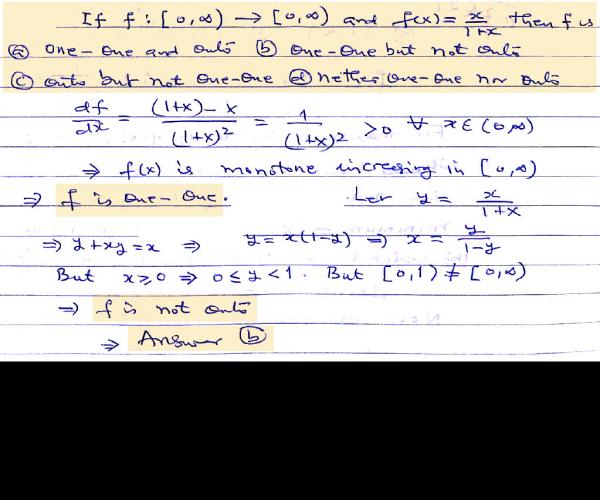 If f : [0,∞) → [0,∞) and f(x) = x/(1+x) then f is
(a) one-one and onto (b) one-one but not onto
(c) onto but not one-one (d) nether one-one nor onto
df/dx = ((1+x)-x)/(1+x)² = 1/(1+x)² > 0 ∀ x∈(0,∞)
⇒ f(x) is monotone increasing in [0,∞)
⇒ f is one-one. Let y = x/(1+x)
⇒ y+xy=x ⇒ y=x(1-y) ⇒ x = y/(1-y)
But x≥0 ⇒ 0≤y<1. But [0,1) ≠ [0,∞)
⇒ f is not onto
⇒ Answer (b)